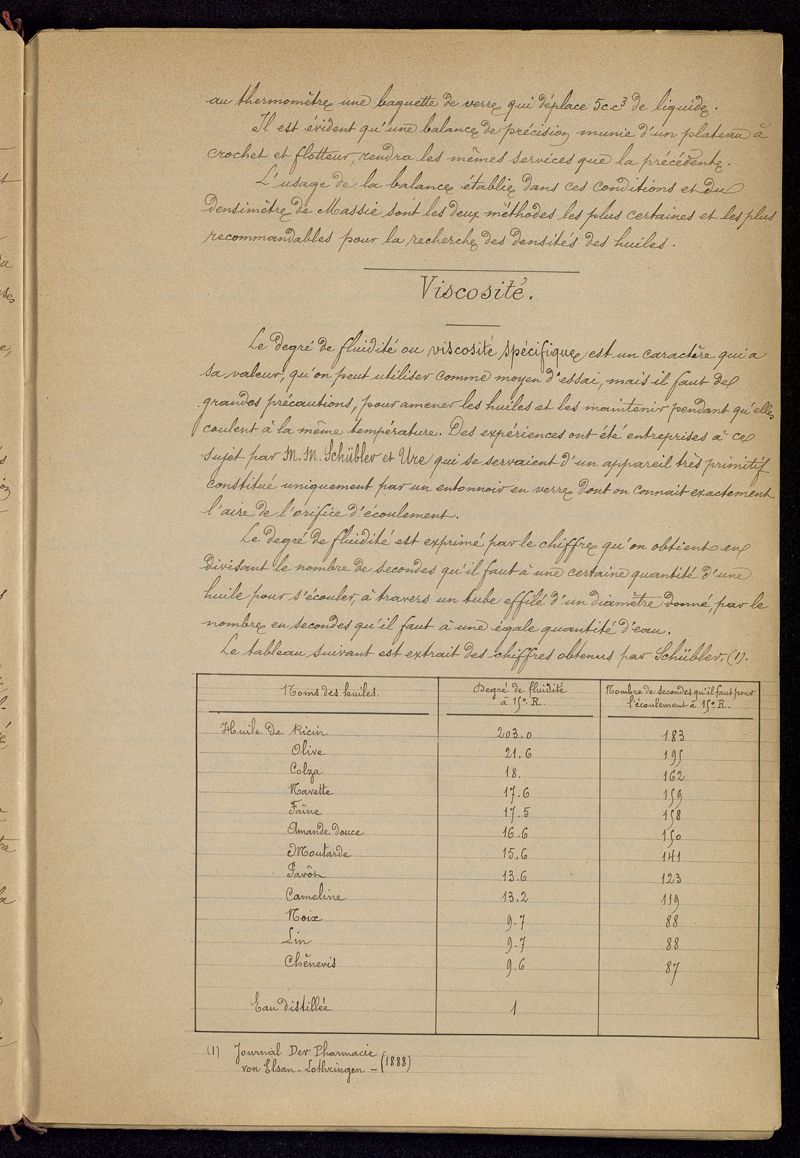 au thermomètre une baguette de verre qui déplace 5cc³ de liquide.
Il est évident qu'une balance de précision munie d'un plateau à
crochet et flotteur, rendra les mêmes services que la précédente.
L'usage de la balance établie dans ces conditions et du
densimètre de Massie sont les deux méthodes les plus certaines et les plus
recommandables pour la recherche des densités des huiles.
Viscosité.
Le degré de fluidité ou viscosité spécifique est un caractère qui a
sa valeur, qu'on peut utiliser comme moyen d'essai, mais il faut de
grandes précautions, pour amener les huiles et les maintenir pendant qu'elles
coulent à la même température. Des expériences ont été entreprises à ce
sujet par M.M. Schübler et Ure qui se servaient d'un appareil très primitif
constitué uniquement par un entonnoir en verre dont on connait exactement
l'aire de l'orifice d'écoulement.
Le degré de fluidité est exprimé par le chiffre qu'on obtient en
divisant le nombre de secondes qu'il faut à une certaine quantité d'une
huile pour s'écouler, à travers un tube effilé d'un diamètre donné, par le
nombre en secondes qu'il faut à une égale quantité d'eau.
Le tableau suivant est extrait des chiffres obtenus par Schübler, (1).
Noms des huiles. Degré de fluidité à 15° R. Nombre de secondes qu'il faut pour l'écoulement à 15° R.
Huile De Ricin 203.0 183
Olive 21.6 195
Colza 18. 162
Navette 17.6 159
Faîne 17.5 158
Amande douce 16.6 150
Moutarde 15.6 141
Pavôt 13.6 123
Cameline 13.2 119
Noix 9.7 88
Lin 9.7 88
Chênevis 9.6 87
Eau distillée 1
(1) Journal Der Pharmacie
von Elsan-Lothringen - (1888)